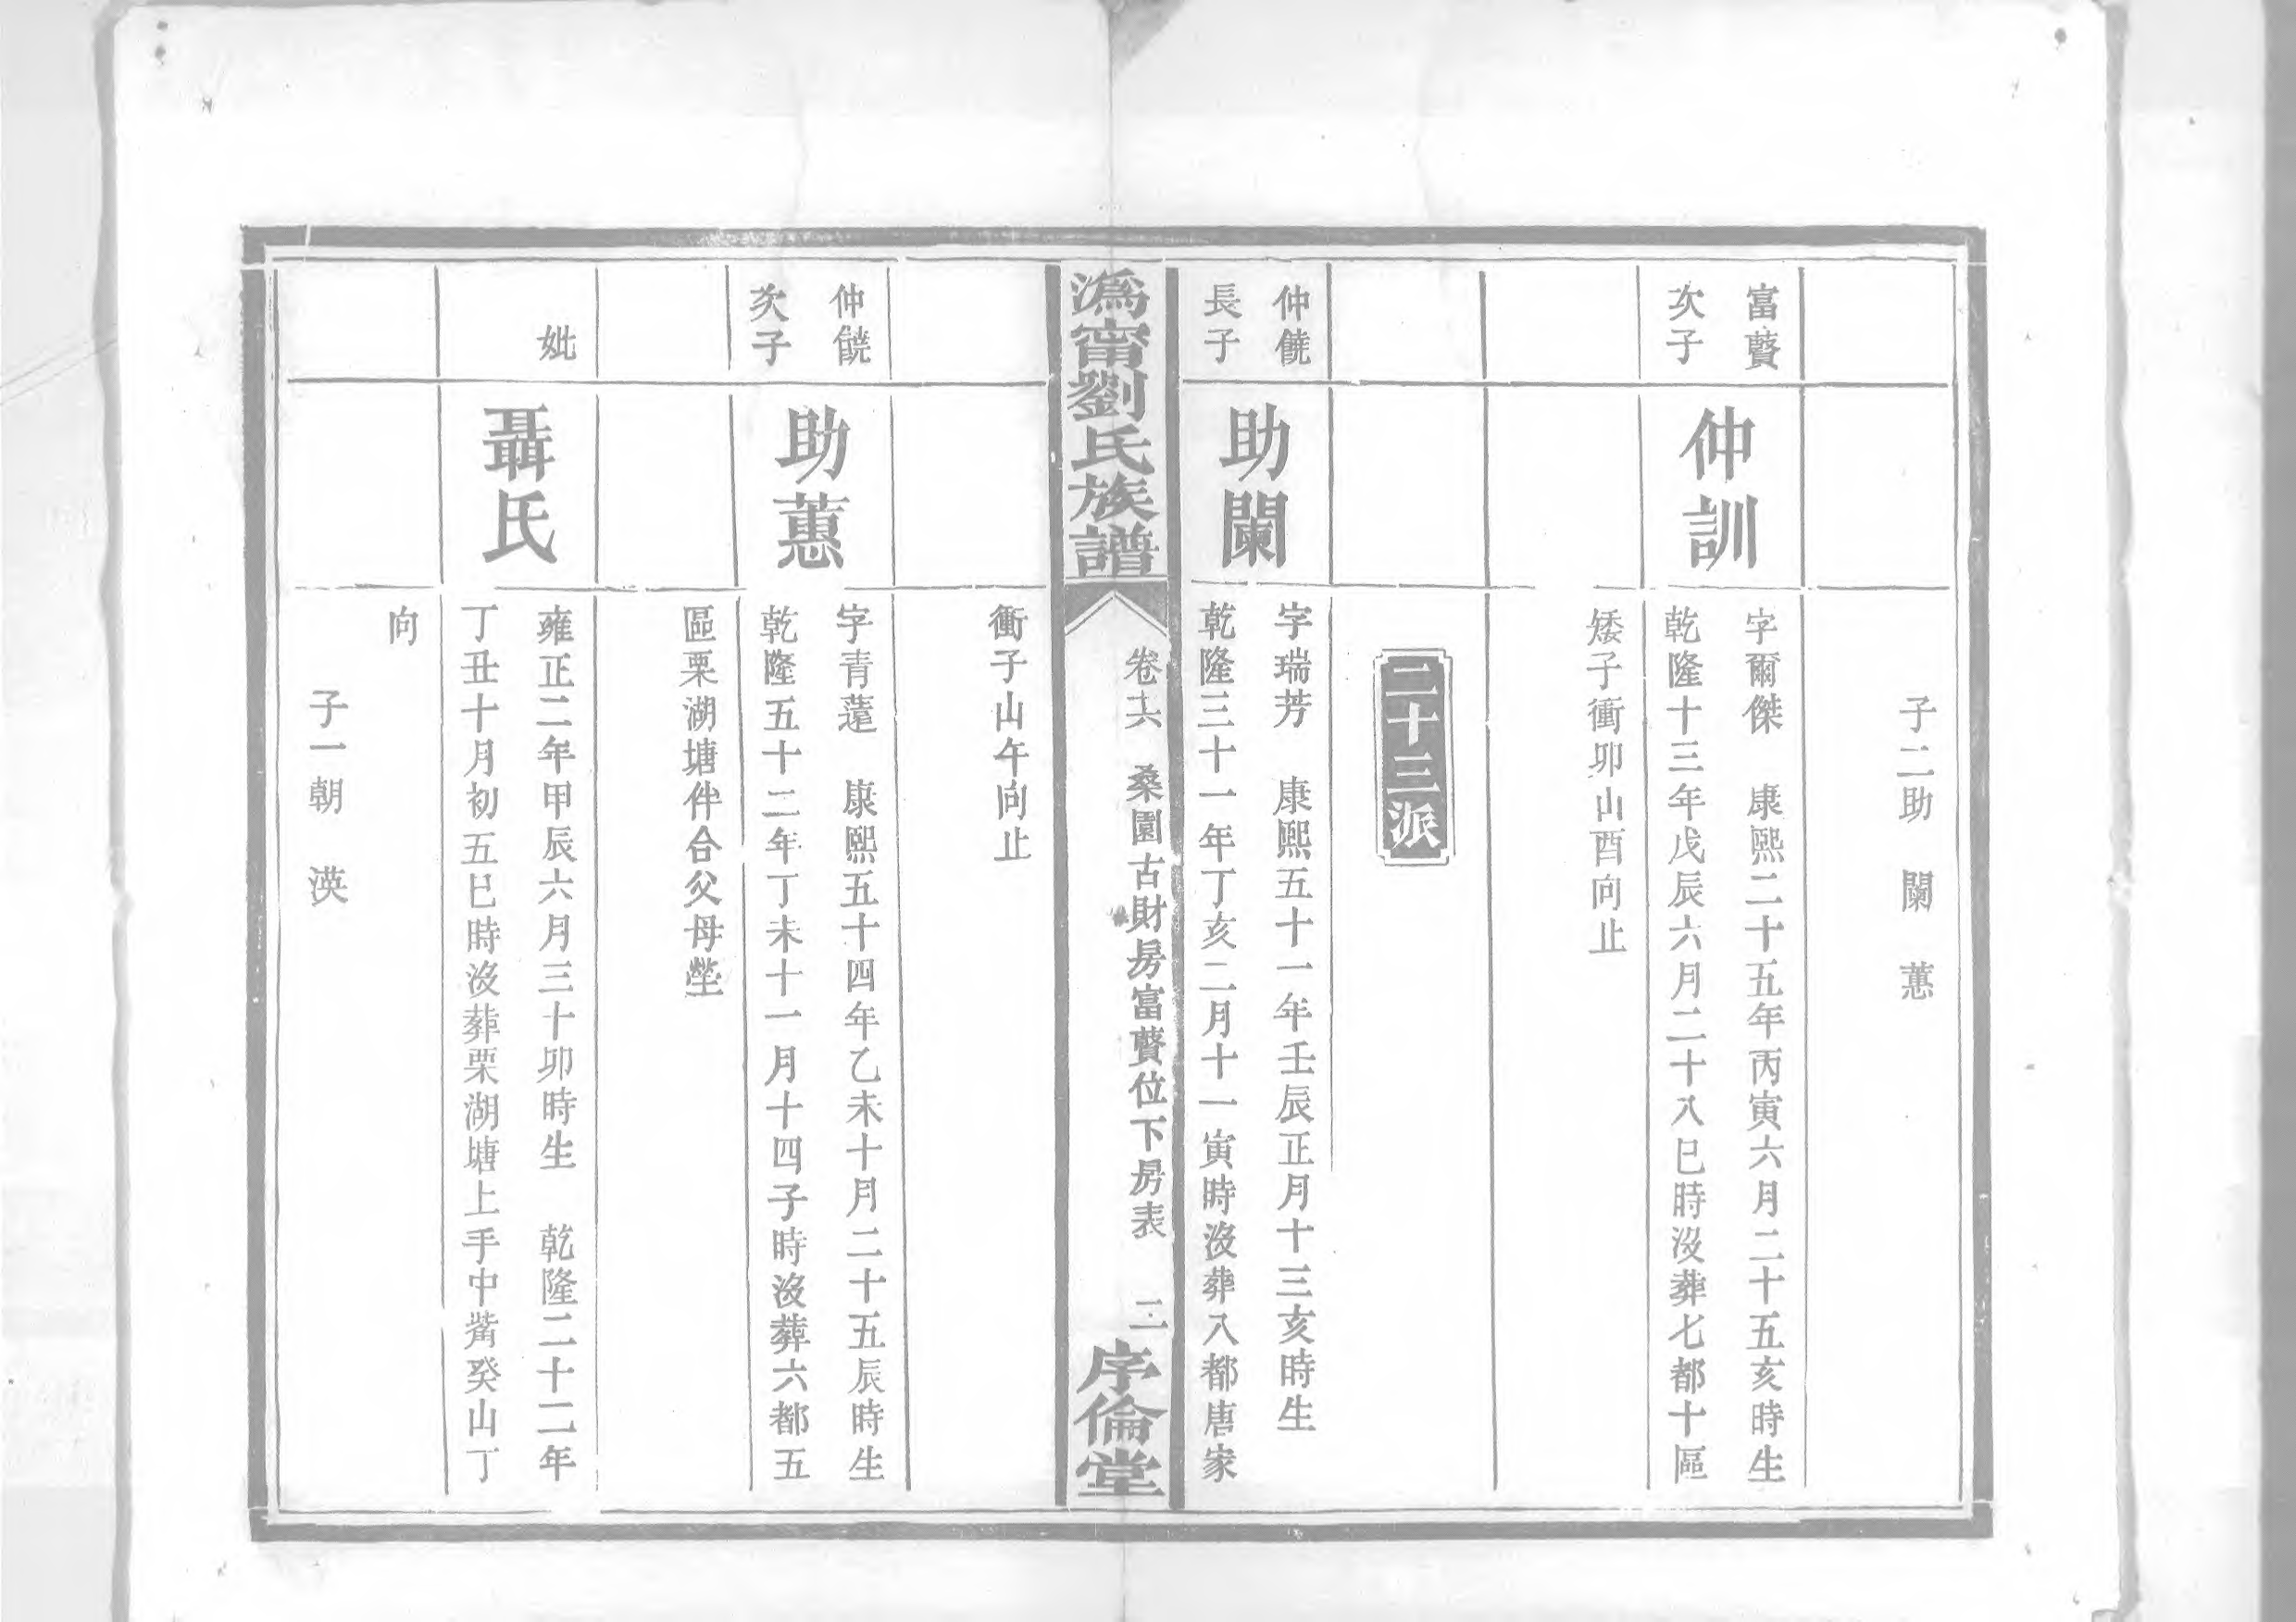 子二助 闌 蕙
富贒
次子
仲訓
字爾傑 康熙二十五年丙寅六月二十五亥時生
乾隆十三年戊辰六月二十八巳時沒葬七都十區
矮子衝卯山酉向止
二十三派
仲饒
長子
助闌
字瑞芳 康熙五十一年壬辰正月十三亥時生
乾隆三十一年丁亥二月十一寅時沒葬八都唐家
衝子山午向止
溈甯劉氏族譜
卷十六 桑園古財房富贒位下房表 二
序倫堂
仲饒
次子
助蕙
字青蘧 康熙五十四年乙未十月二十五辰時生
乾隆五十二年丁未十一月十四子時沒葬六都五
區栗湖塘伴合父母塋
妣
聶氏
雍正二年甲辰六月三十卯時生 乾隆二十二年
丁丑十月初五巳時沒葬栗湖塘上手中觜癸山丁
向
子一朝 渶